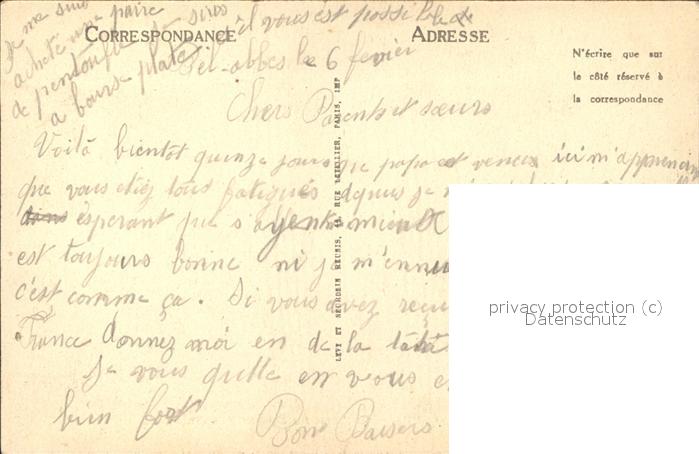 Je me suis
acheté une paire
de pentoufle
a bourse plate
s'il vous est possible
CORRESPONDANCE
ADRESSE
Bel-abbes le 6 fevrier
N'écrire que sur
le côté réservé à
la correspondance
Chers Parents et sœurs
Voilà bientot quinze jours que papa est venu ici m'apprenant
que vous etiez tous fatigués depuis je n'ai
esperant que
est toujours bonne ni je m'ennui
c'est comme ça. Si vous avez reçu
France donnez moi en de la
Je vous quitte en vous
bien fort
Bons Baisers
LEVI ET NEURDEIN REUNIS, 44, RUE LETELLIER, PARIS, IMP
privacy protection (c)
Datenschutz